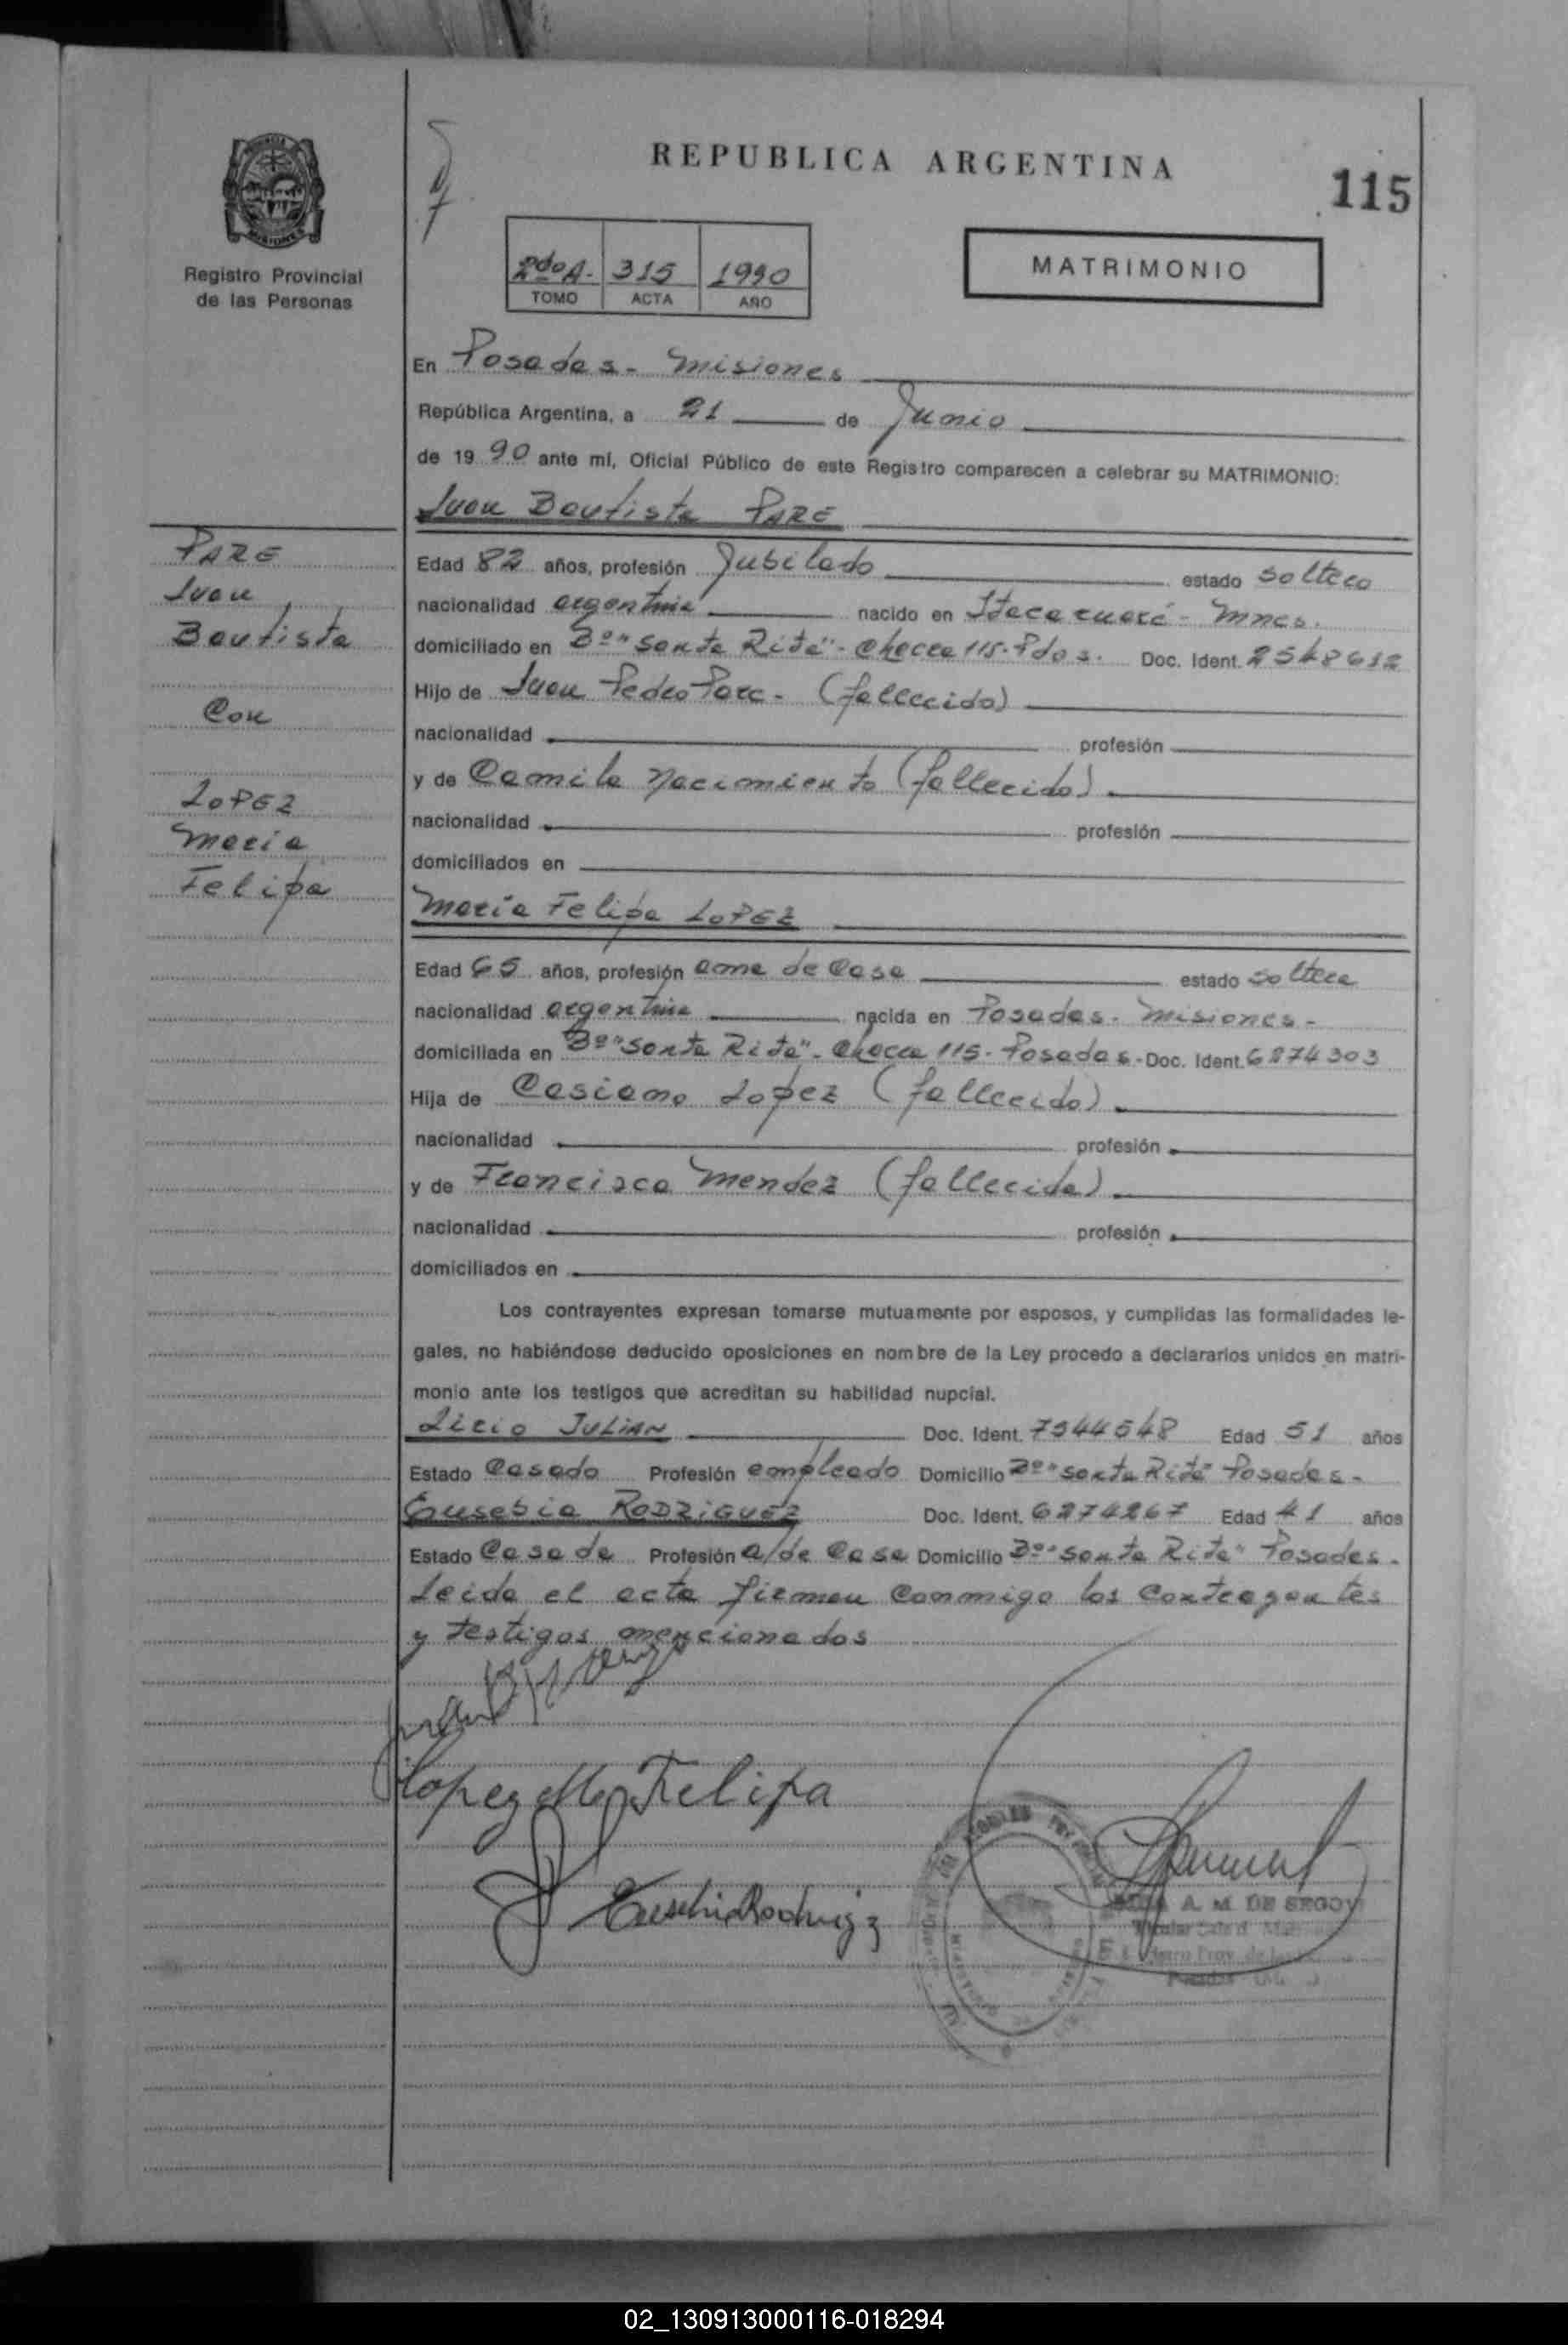 REPUBLICA ARGENTINA
115
Registro Provincial
de las Personas
2do A. 315 1990
TOMO ACTA AÑO
MATRIMONIO
En Posadas - Misiones
República Argentina, a 21 de Junio
de 19 90 ante mí, Oficial Público de este Registro comparecen a celebrar su MATRIMONIO:
Juan Bautista PARE
PARE
Juan
Bautista
Con
LOPEZ
Maria
Felipa
Edad 82 años, profesión Jubilado estado soltero
nacionalidad argentina nacido en Itacaruaré - Mnes.
domiciliado en Bº "Santa Rita" - Chacra 115 - Pdas. Doc. Ident. 2548612
Hijo de Juan Pedro Pare - (fallecido)
nacionalidad profesión
y de Camila Nacimiento (fallecida)
nacionalidad profesión
domiciliados en
María Felipa LOPEZ
Edad 65 años, profesión ama de casa estado soltera
nacionalidad argentina nacida en Posadas - Misiones -
domiciliada en Bº "Santa Rita" - Chacra 115 - Posadas - Doc. Ident. 6274303
Hija de Casiano Lopez (fallecido)
nacionalidad profesión
y de Francisca Mendez (fallecida)
nacionalidad profesión
domiciliados en
Los contrayentes expresan tomarse mutuamente por esposos, y cumplidas las formalidades le-
gales, no habiéndose deducido oposiciones en nombre de la Ley procedo a declararlos unidos en matri-
monio ante los testigos que acreditan su habilidad nupcial.
Lirio JULIAN Doc. Ident. 7544548 Edad 51 años
Estado Casado Profesión empleado Domicilio Bº "Santa Rita" Posadas -
Eusebia RODRIGUEZ Doc. Ident. 6274267 Edad 41 años
Estado Casada Profesión a/de Casa Domicilio Bº "Santa Rita" Posadas -
Leida el acta firman conmigo los contrayentes
y testigos mencionados
Lopez Ma Felipa
Eusebia Rodrigez
A. M. DE SEGOV
02_130913000116-018294